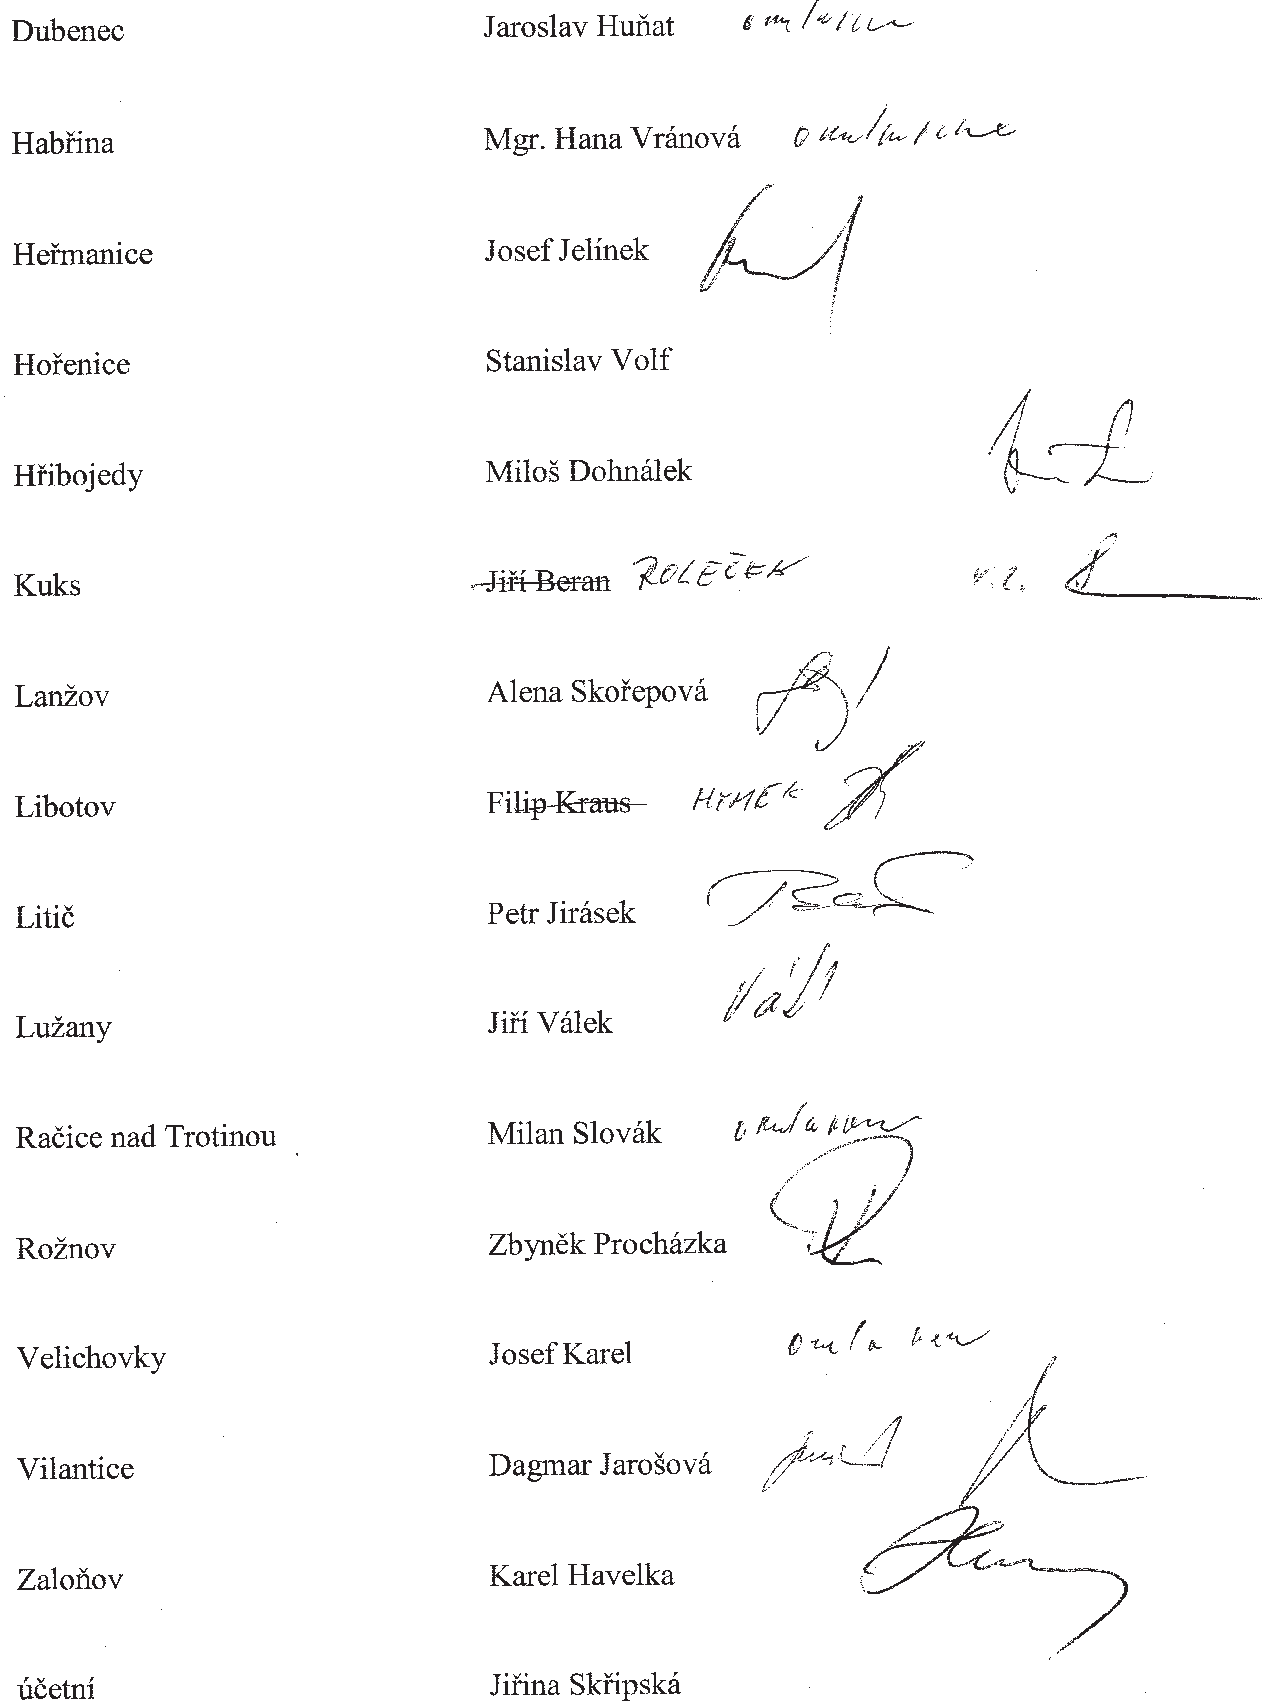 Dubenec Jaroslav Huňat omluven
Habřina Mgr. Hana Vránová omluvena
Heřmanice Josef Jelínek
Hořenice Stanislav Volf
Hřibojedy Miloš Dohnálek
Kuks Jiří Beran ROLEČEK v.z.
Lanžov Alena Skořepová
Libotov Filip Kraus HYNEK
Litič Petr Jirásek
Lužany Jiří Válek
Račice nad Trotinou Milan Slovák omluven
Rožnov Zbyněk Procházka
Velichovky Josef Karel omluven
Vilantice Dagmar Jarošová
Zaloňov Karel Havelka
účetní Jiřina Skřipská